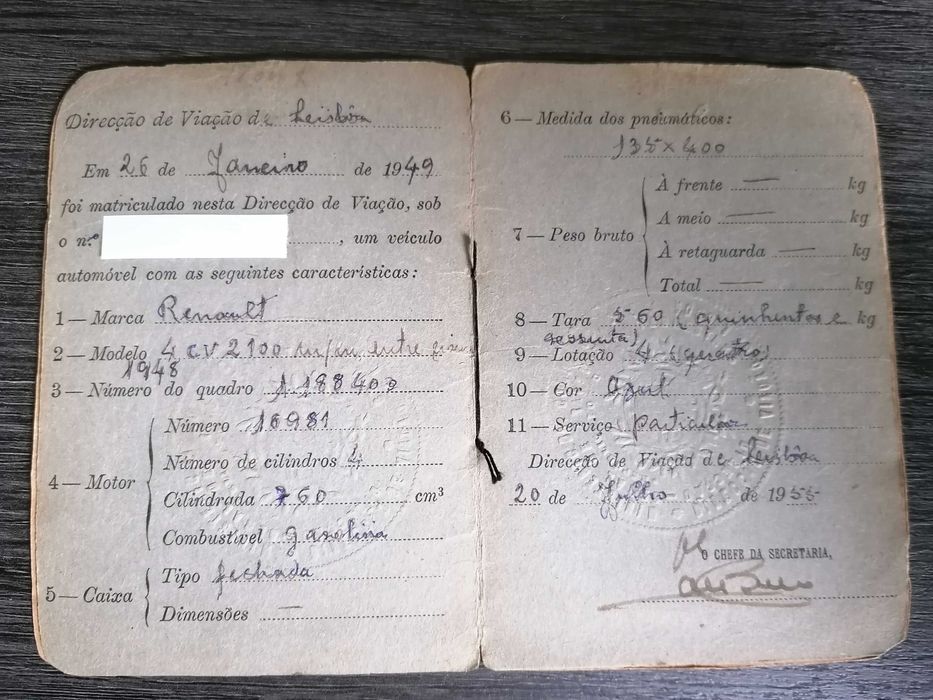 Direcção de Viação de Leisbôa
Em 26 de Janeiro de 1949
foi matriculado nesta Direcção de Viação, sob
o n.º , um veículo
automóvel com as seguintes características:
1 — Marca Renault
2 — Modelo 4 cv 2100 m/m entre
1948
3 — Número do quadro 1.198400
4 — Motor
Número 16981
Número de cilindros 4
Cilindrada 760 cm³
Combustível gasolina
5 — Caixa
Tipo fechada
Dimensões —
6 — Medida dos pneumáticos:
135 x 400
7 — Peso bruto
À frente — kg
A meio — kg
À retaguarda — kg
Total — kg
8 — Tara 560 (quinhentos e kg
sessenta)
9 — Lotação 4 (quatro)
10 — Cor Azul
11 — Serviço particular
Direcção de Viação de Leisbôa
20 de Julho de 1955
O CHEFE DA SECRETARIA,